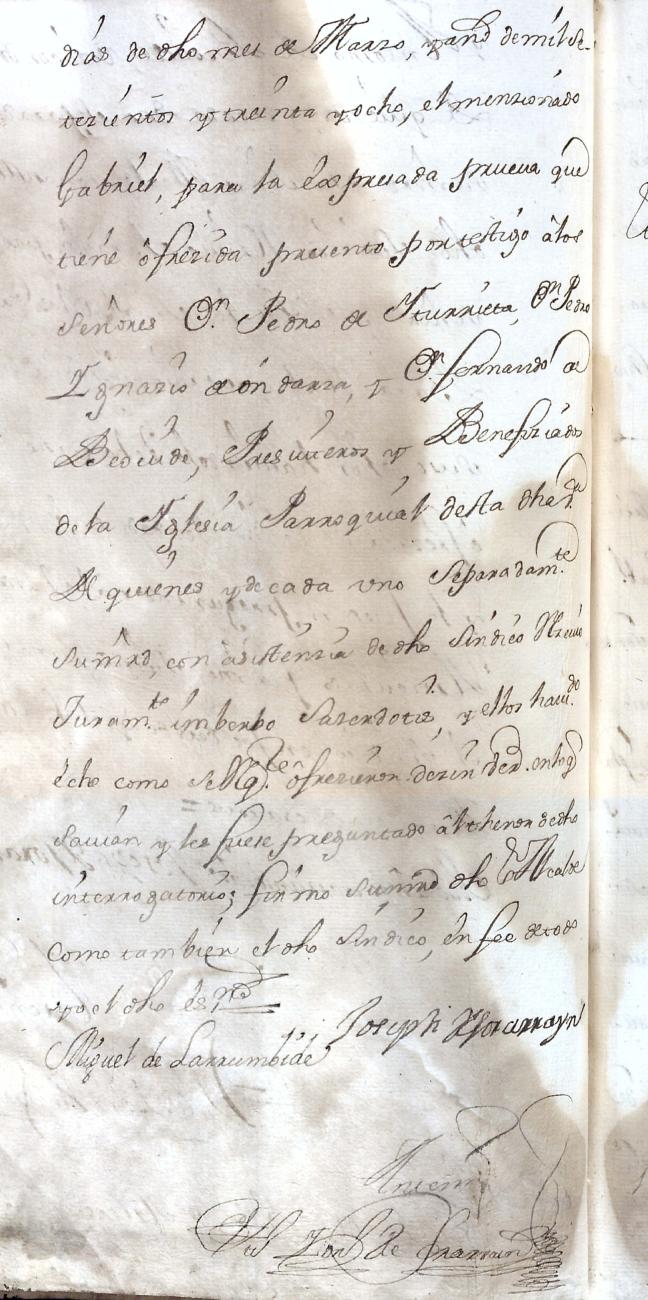 dias de dho mes de Marzo, y año de mil Se-
tezientos y treinta y ocho, el menzionado
Gabriel, para la expresada prueva que
tiene ôfrezida presento por testigo âlos
Señores Dn. Pedro de Yturrieta, Dn Pedro
Ygnazio de ondarza, y Dn. fernando de
Bediude, Presviteros y Benefiziados
dela Yglesia Parroquial desta dha
A quienes y de cada uno Separadamte.
Sumrd, con asistenzia de dho Sindico Rezivio
Juramto. imberbo Sazerdotis, y ellos havido.
echo como Se Rqe. ôfrezieron dezir verd. enloq
Savian y les fuese preguntado âl thenor dedho
interrogatorio; firmo Sumrd dho Sr Alcalde
Como tambien el dho Sindico, en fee detodo
yo el dho esno
Joseph
Miguel de Larrumbide
Antemi
de